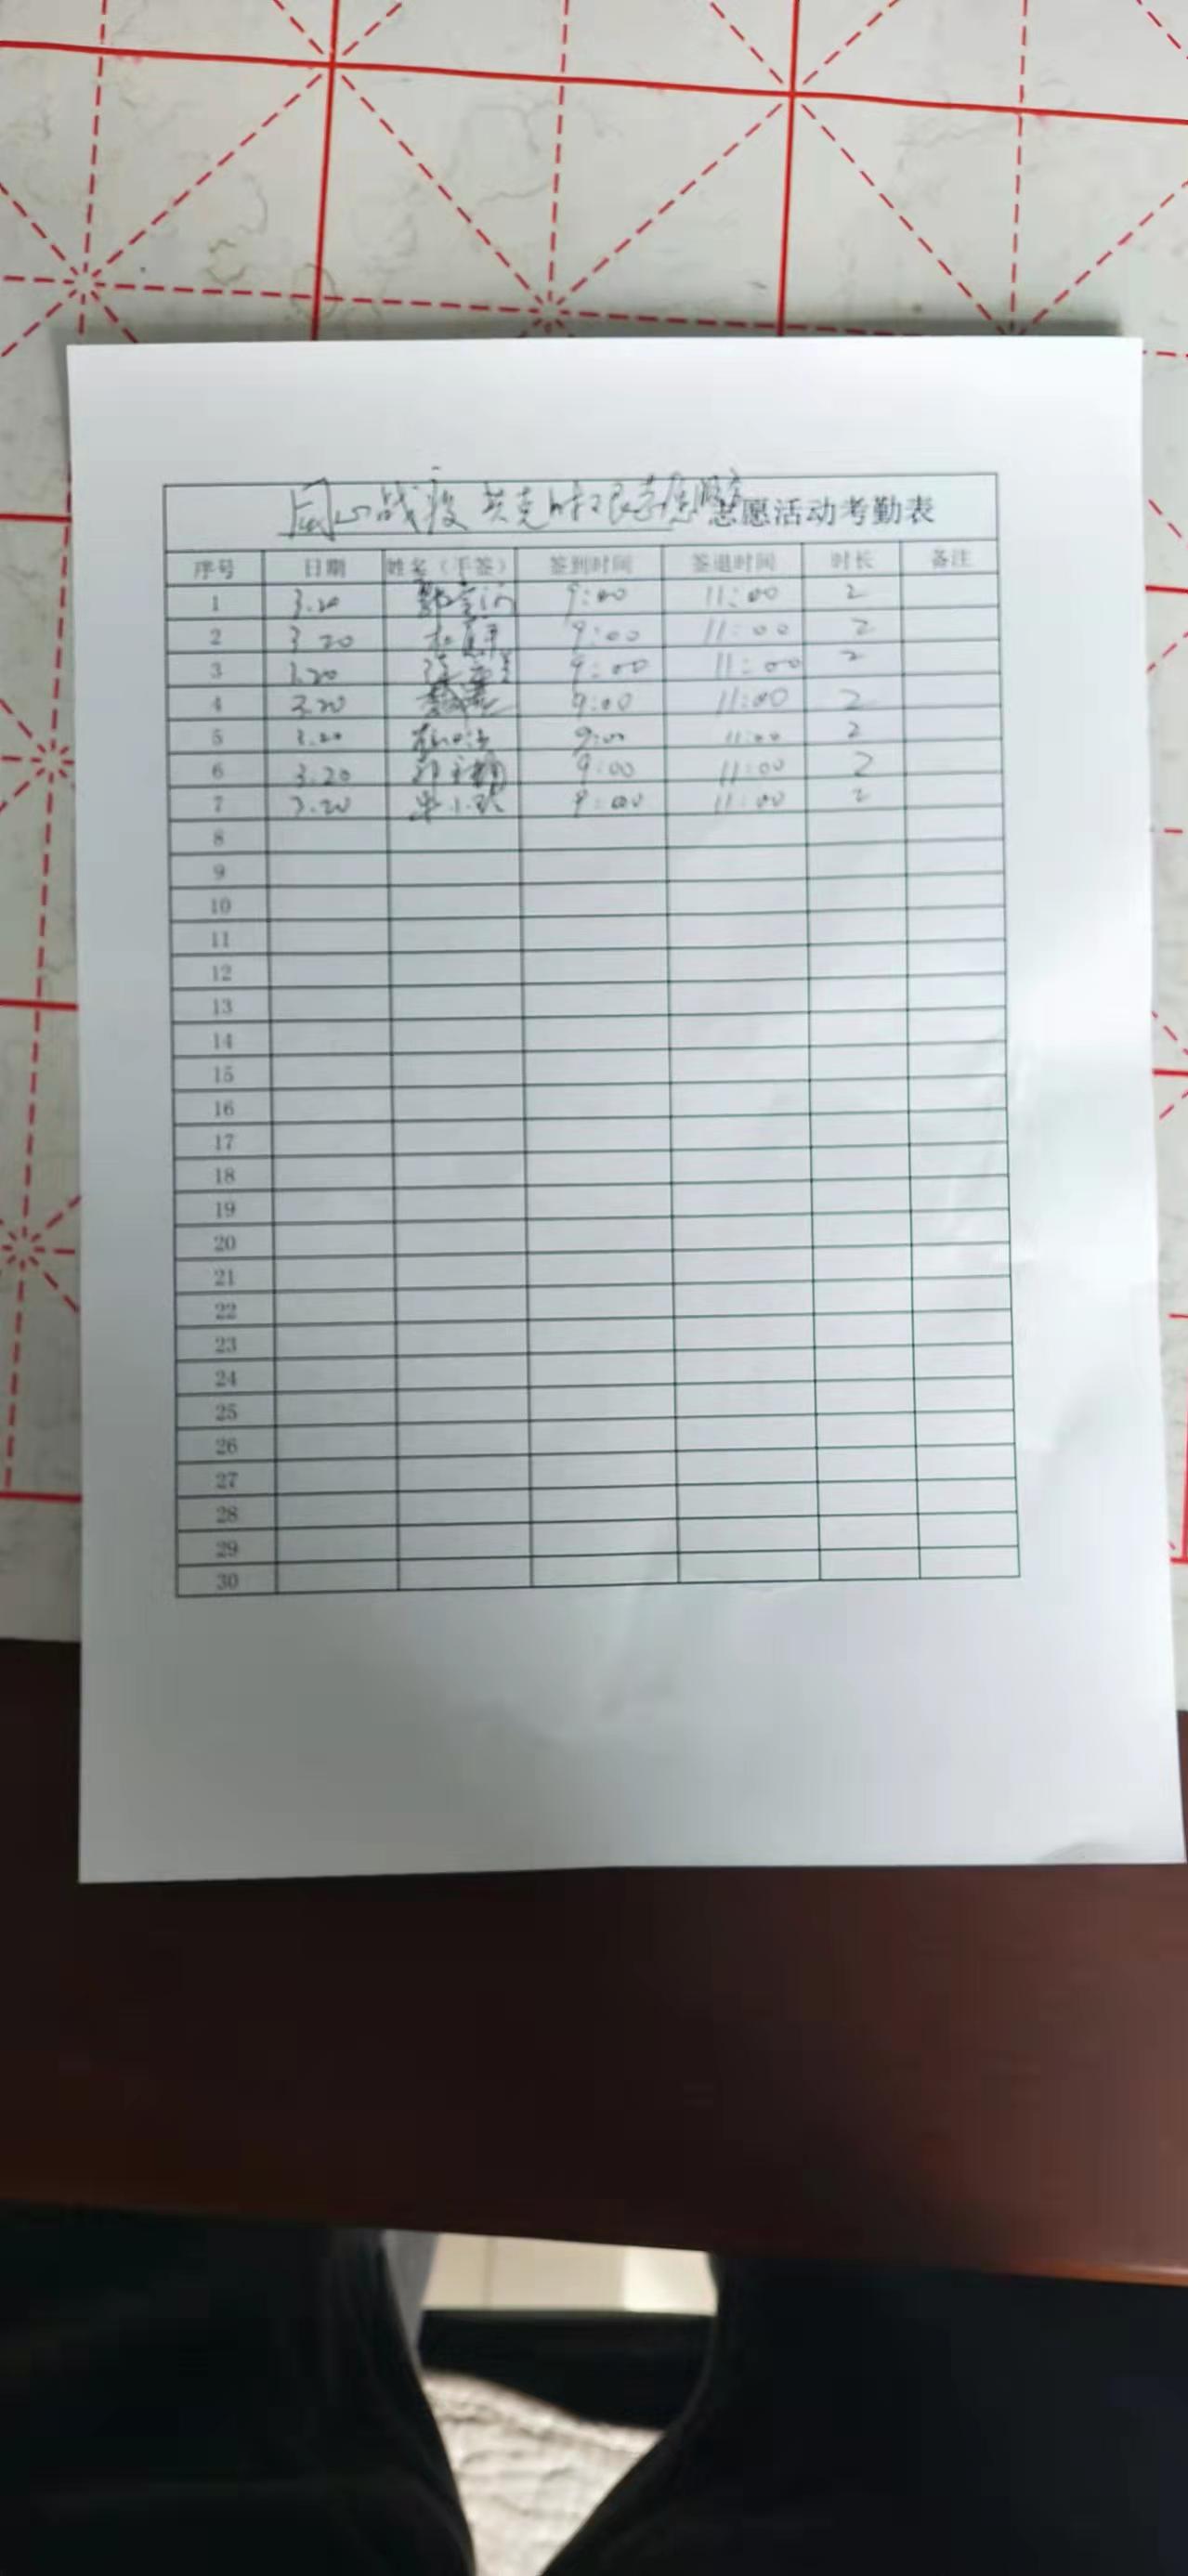 同心战疫 共克时艰志愿服务志愿活动考勤表
序号 日期 姓名（手签） 签到时间 签退时间 时长 备注
1 3.20 9:00 11:00 2
2 3.20 9:00 11:00 2
3 3.20 9:00 11:00 2
4 3.20 9:00 11:00 2
5 3.20 9:00 11:00 2
6 3.20 9:00 11:00 2
7 3.20 9:00 11:00 2
8
9
10
11
12
13
14
15
16
17
18
19
20
21
22
23
24
25
26
27
28
29
30